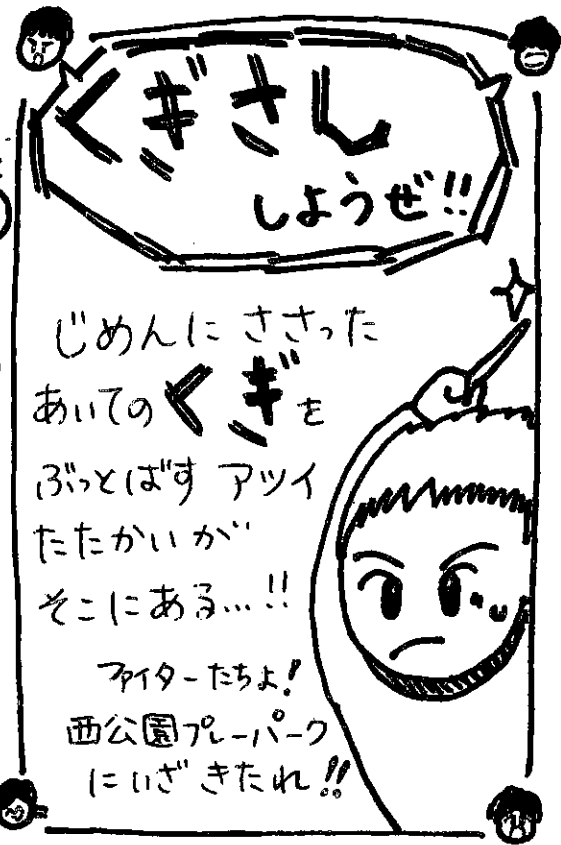 くぎさし
しようぜ!!
じめんに ささった
あいての くぎを
ぶっとばす アツイ
たたかいが
そこにある…!!
ファイターたちよ!
西公園プレーパーク
にいざ きたれ!!